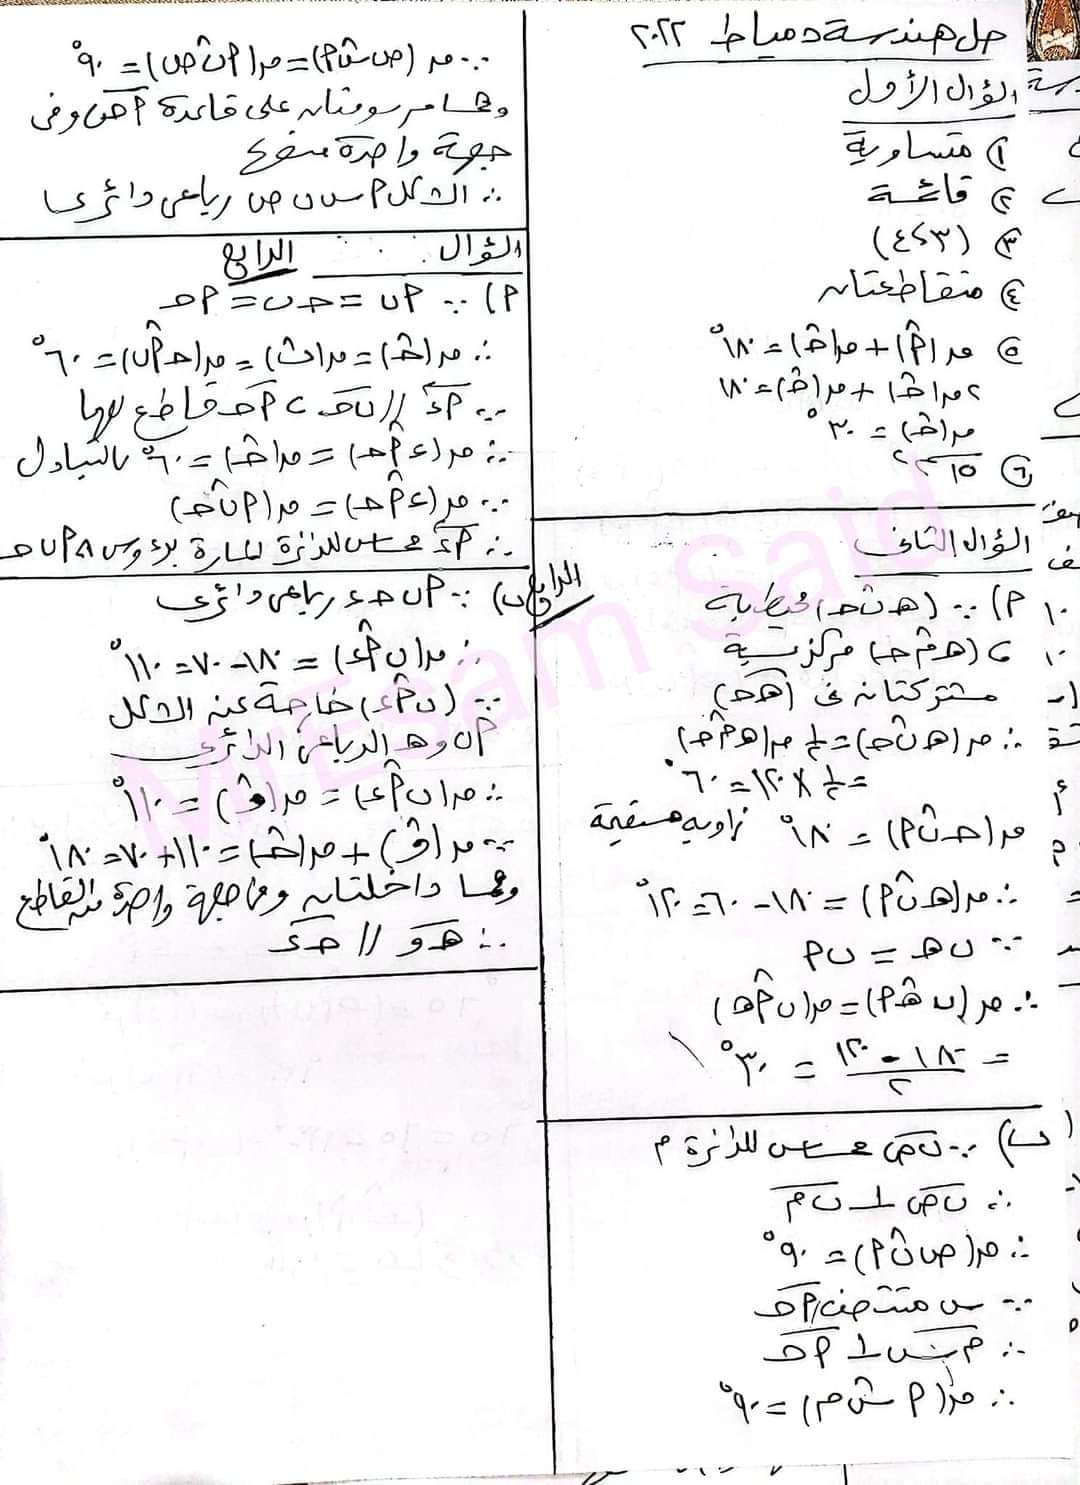 حل هندسة دمياط ٢٠٢٢
السؤال الأول
١) متساوية
٢) قائمة
٣) (٣، ٤)
٤) متقاطعتان
٥) ق(أ̂) + ق(جـ̂) = ١٨٠°
٥ ق(جـ̂) + ق(جـ̂) = ١٨٠
ق(جـ̂) = ٣٠°
٦) ١٥
السؤال الثانى
أ) ∵ (هـ ب̂ جـ) محيطية
، (هـ م̂ جـ) مركزية
مشتركتان فى (هـ جـ)
∴ ق(هـ ب̂ جـ) = ½ ق(هـ م̂ جـ)
= ½ × ١٢٠ = ٦٠°
ق(جـ ب̂ أ) = ١٨٠° زاوية مستقيمة
∴ ق(هـ ب̂ أ) = ١٨٠ - ٦٠ = ١٢٠°
∵ ب هـ = ب أ
∴ ق(ب هـ̂ أ) = ق(ب أ̂ هـ)
= (١٨٠ - ١٢٠)/٢ = ٣٠°
ب) ∵ ب ص مماس للدائرة م
∴ ب ص ⊥ ب م
∴ ق(ص ب̂ أ) = ٩٠°
∵ س منتصف أ جـ
∴ م س ⊥ أ جـ
∴ ق(أ س̂ م) = ٩٠°
∵ ق(ص س̂ أ) = ق(أ ب̂ ص) = ٩٠°
وهما مرسومتان على قاعدة أ ص وفى
جهة واحدة منها
∴ الشكل أ س ب ص رباعى دائرى
السؤال الرابع
أ) ∵ أ ب = جـ ب = أ جـ
∴ ق(جـ̂) = ق(ب̂) = ق(جـ أ̂ ب) = ٦٠°
∵ أ د // ب جـ ، أ جـ قاطع لهما
∴ ق(د أ̂ جـ) = ق(جـ̂) = ٦٠° بالتبادل
∵ ق(د أ̂ جـ) = ق(أ ب̂ جـ)
∴ أ د مماس للدائرة المارة برءوس △ أ ب جـ
الرابع ب) ∵ أ ب جـ د رباعى دائرى
∴ ق(ب أ̂ د) = ١٨٠ - ٧٠ = ١١٠°
∵ (ب أ̂ د) خارجة عن الشكل
أ ب و هـ الرباعى الدائرى
∴ ق(ب أ̂ د) = ق(و̂) = ١١٠°
∵ ق(و̂) + ق(جـ̂) = ١١٠ + ٧٠ = ١٨٠°
وهما داخلتان وفى جهة واحدة من القاطع
∴ هـ و // جـ د
Mr Esam Said